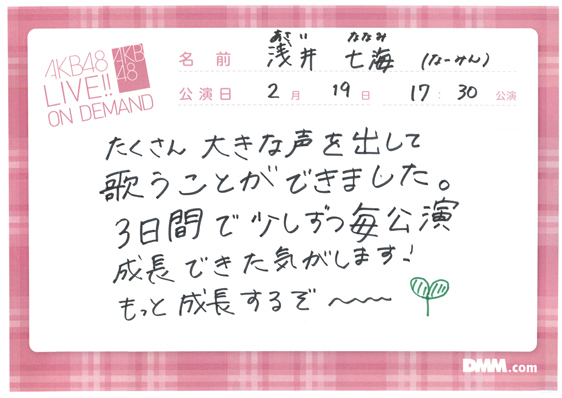 AKB48
LIVE!!
ON DEMAND
AKB
48
あさい ななみ
名前 浅井 七海 (なーみん)
公演日 2月 19日 17:30 公演
たくさん 大きな声を出して
歌うことができました。
3日間で少しずつ毎公演
成長できた気がします!
もっと成長するぞ〜〜〜
DMM.com